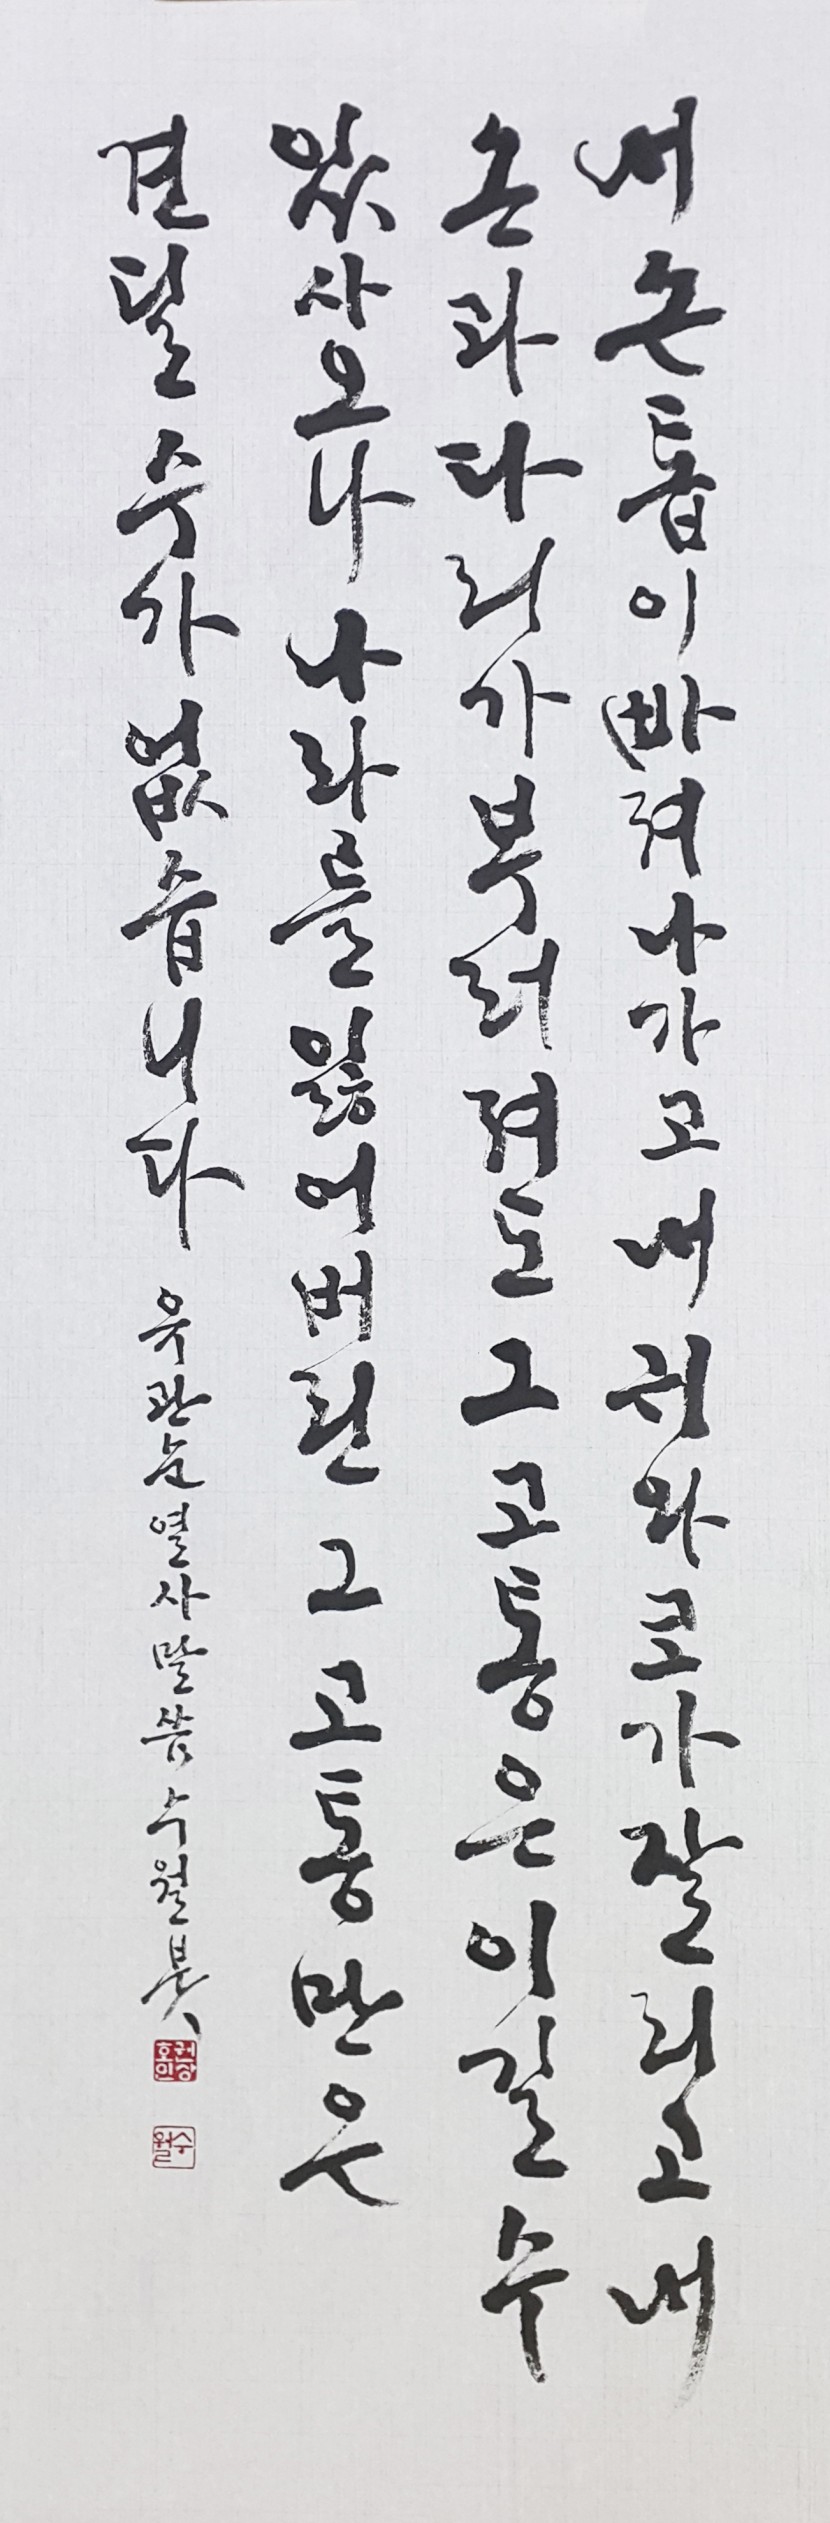 내 손톱이 빠져나가고 내 귀와 코가 잘리고 내
손과 다리가 부러져도 그 고통은 이길 수
있사오나 나라를 잃어버린 그 고통만은
견딜 수가 없습니다 유관순 열사 말씀 수월 붓
수월